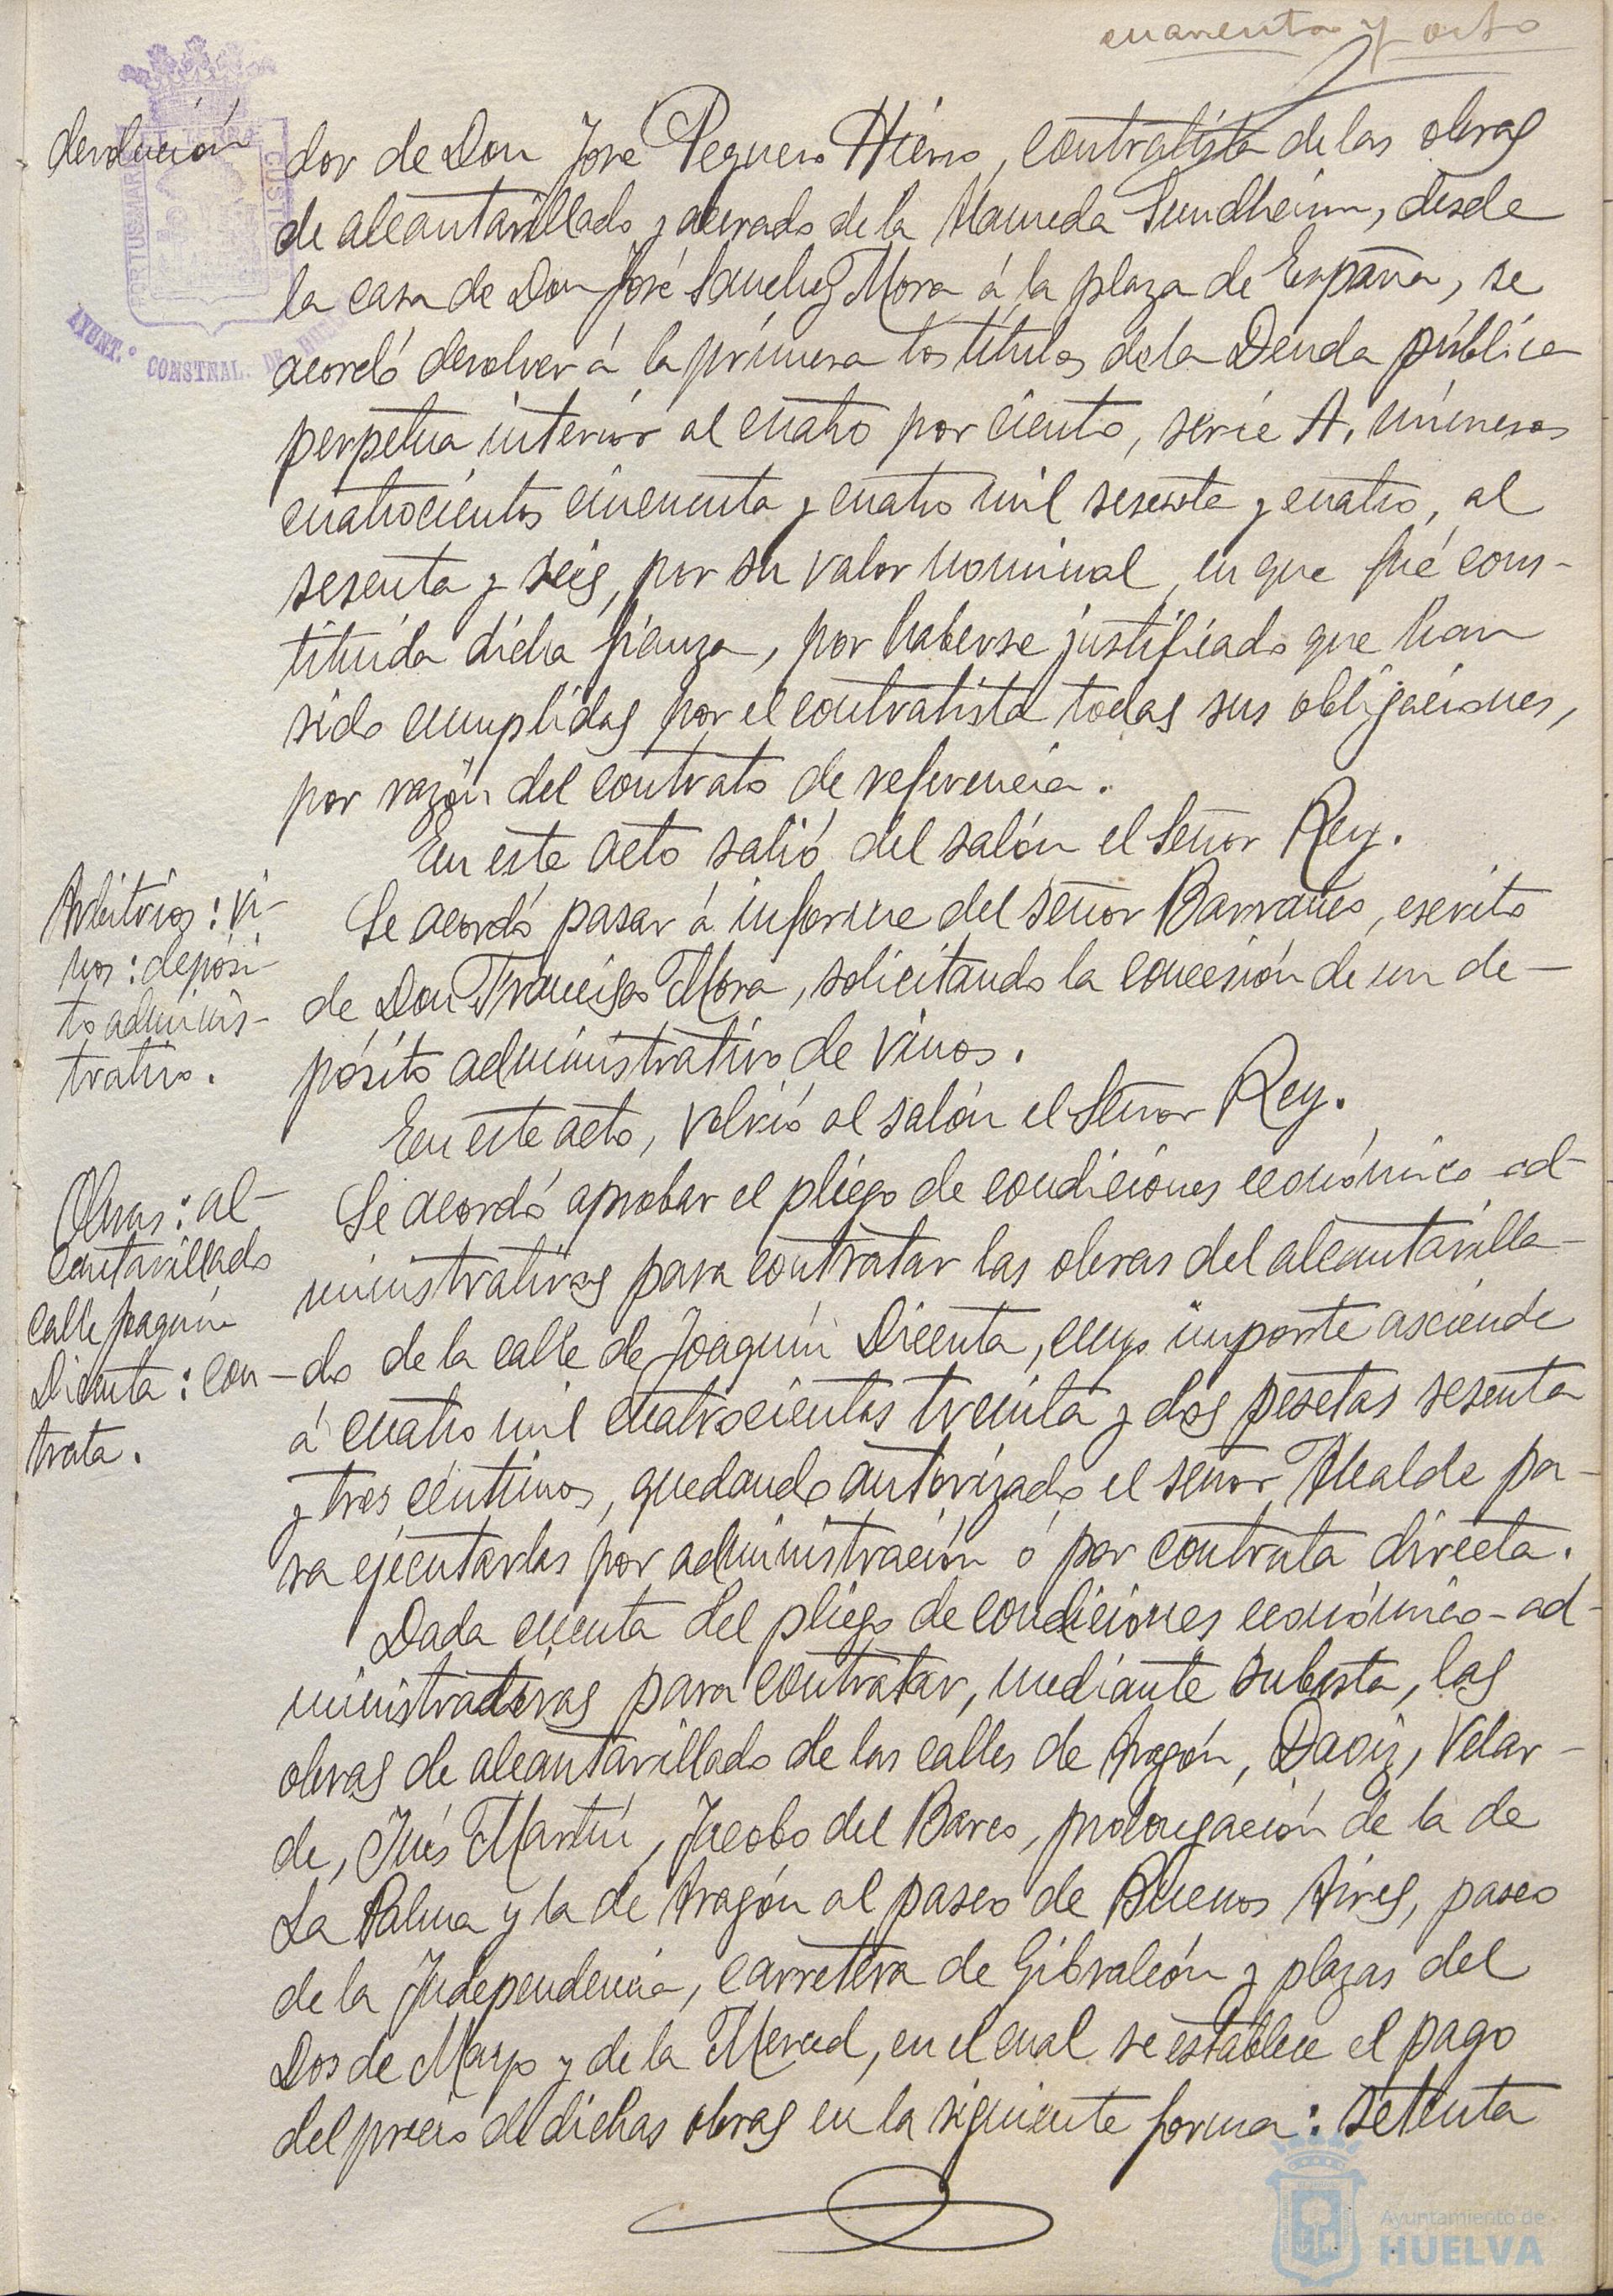 cuarenta y ocho
devolución
dor de Don José Peguero Hierro, contratista de las obras
de alcantarillado y acerado de la Alameda Sundheim, desde
la casa de Don José Sánchez Mora á la plaza de España, se
acordó devolver á la primera los títulos de la Deuda pública
perpetua interior al cuatro por ciento, serie A. números
cuatrocientos cincuenta y cuatro mil sesenta y cuatro, al
sesenta y seis, por su valor nominal, en que fué cons-
tituida dicha fianza, por haberse justificado que han
sido cumplidas por el contratista todas sus obligaciones,
por razón del contrato de referencia.
En este acto salió del salón el Señor Rey.
Arbitrios: vi-
nos: depósi-
to adminis-
trativo.
Se acordó pasar á informe del Señor Barranco, escrito
de Don Francisco Mora, solicitando la concesión de un de-
pósito administrativo de vinos.
En este acto, volvió al salón el Señor Rey.
Obras: al-
cantarillado
calle Joaquín
Dicenta: con-
trata.
Se acordó aprobar el pliego de condiciones económico-ad-
ministrativas para contratar las obras del alcantarilla-
do de la calle de Joaquín Dicenta, cuyo importe asciende
á cuatro mil cuatrocientas treinta y dos pesetas sesenta
y tres céntimos, quedando autorizado el señor Alcalde pa-
ra ejecutarlas por administración ó por contrata directa.
Dada cuenta del pliego de condiciones económico-ad-
ministrativas para contratar, mediante subasta, las
obras de alcantarillado de las calles de Aragón, Daoiz, Velar-
de, Inés Martín, Jacobo del Barco, prolongación de la de
La Palma y la de Aragón al paseo de Buenos Aires, paseo
de la Independencia, carretera de Gibraleón y plazas del
Dos de Mayo y de la Merced, en el cual se establece el pago
del precio de dichas obras en la siguiente forma: setenta
AYUNT.º CONSTNAL. DE
Ayuntamiento de
HUELVA